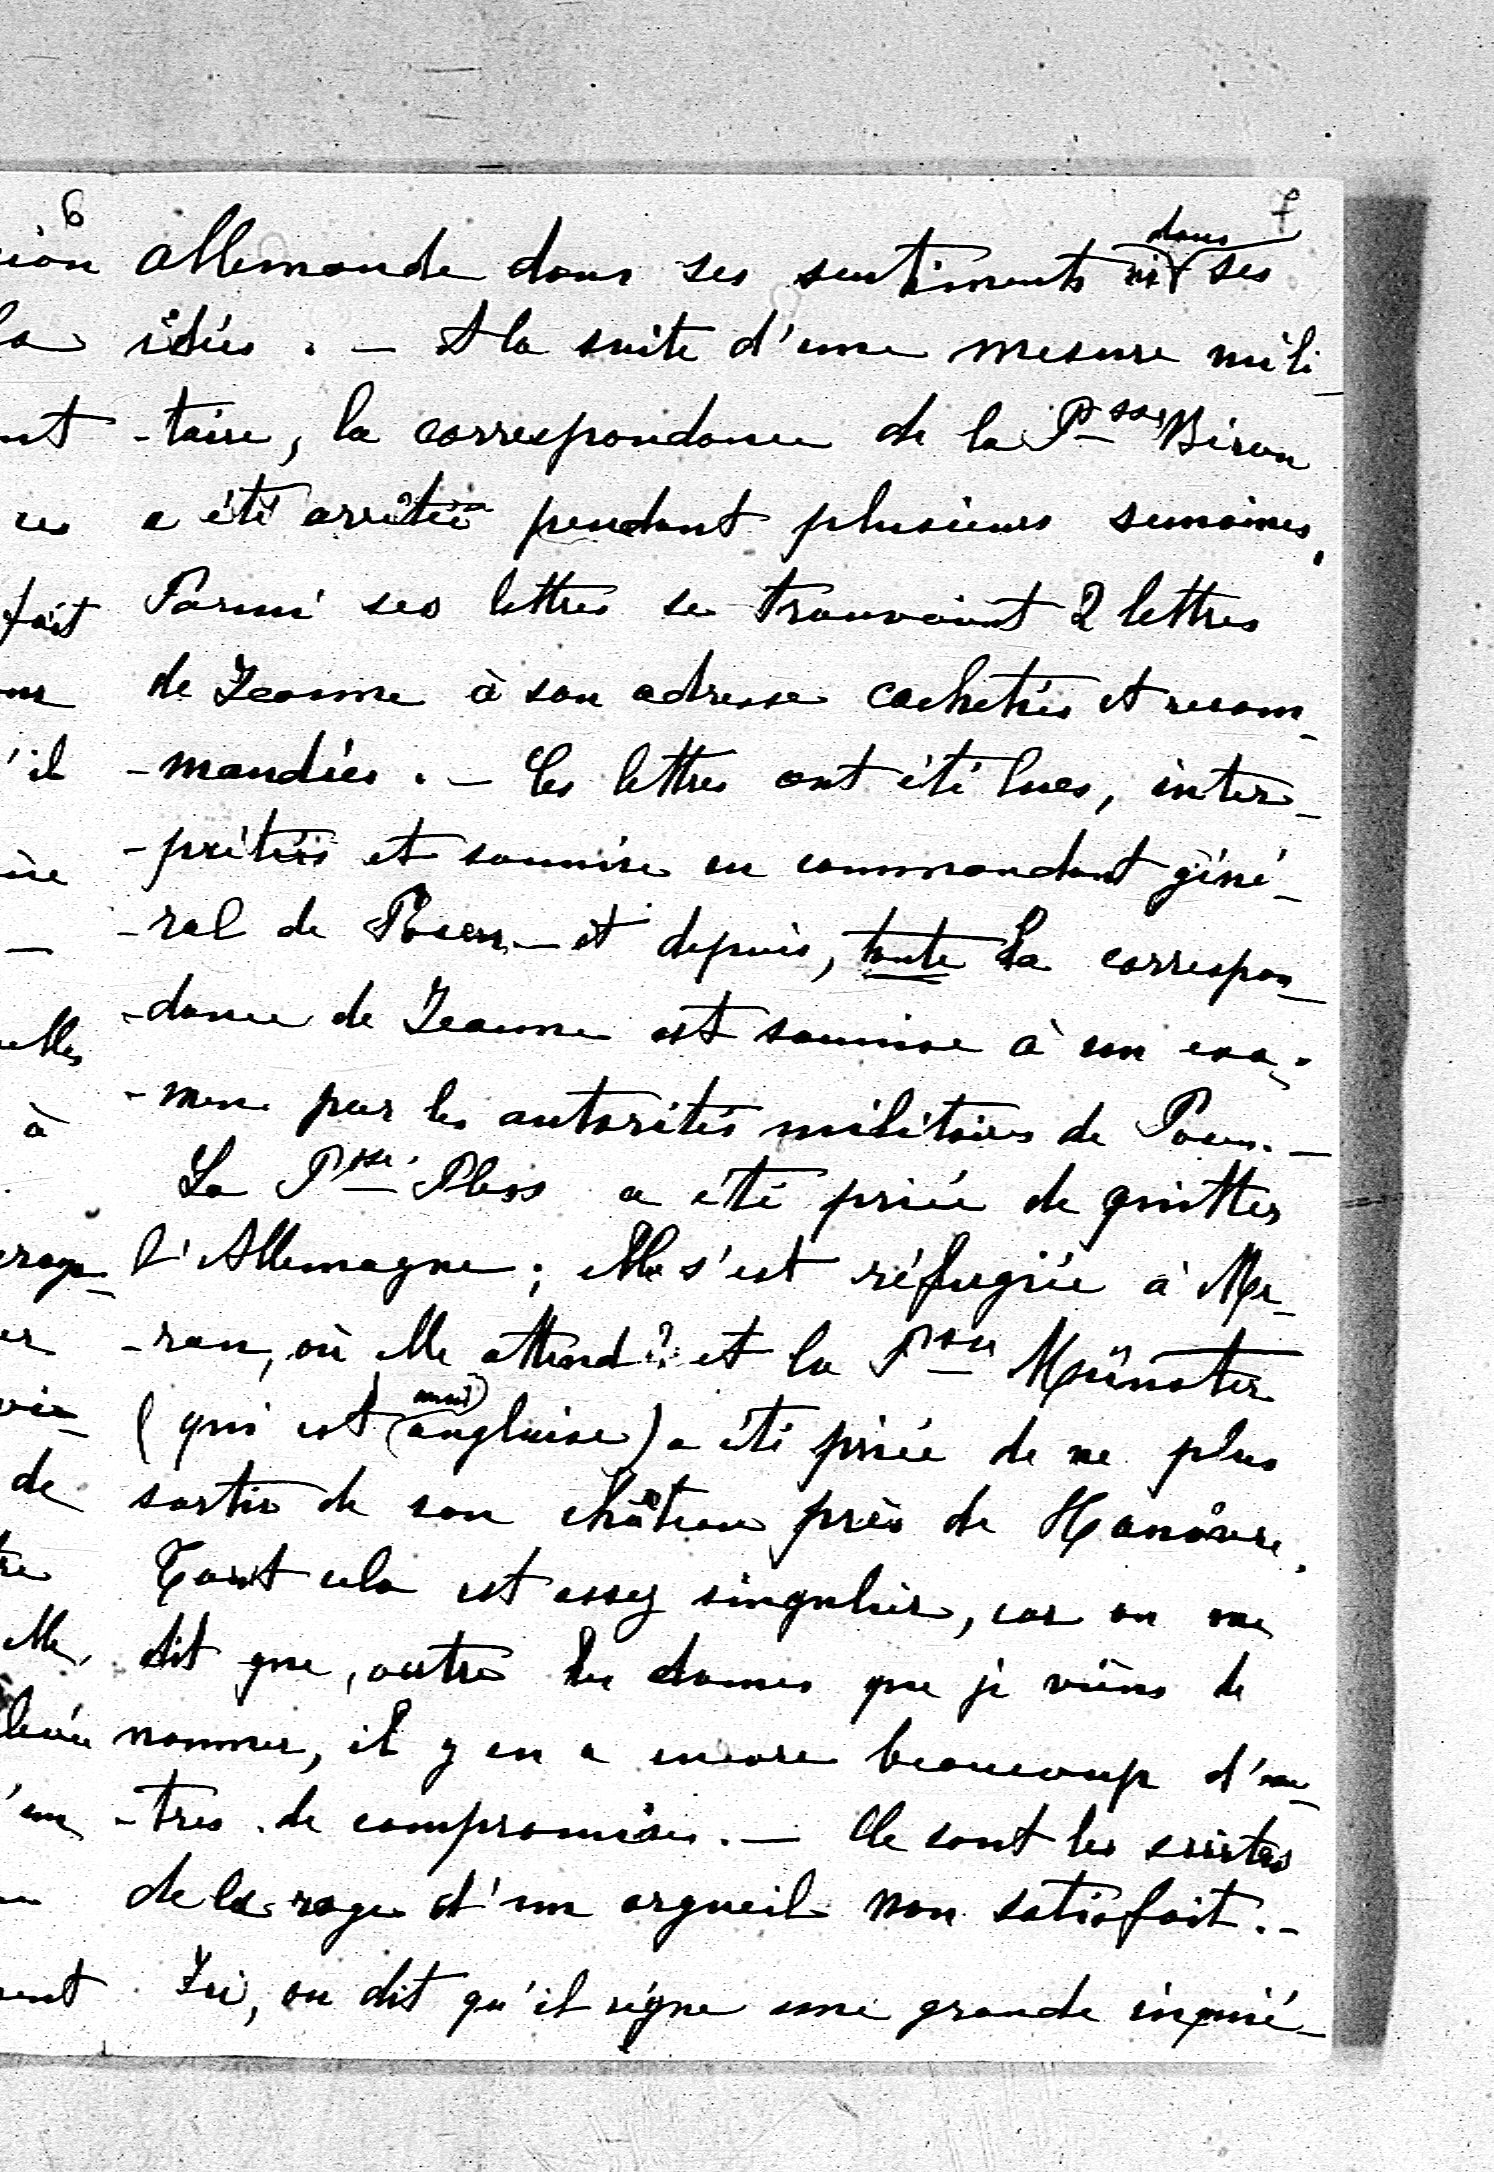 6 7
allemande dans ses sentiments ni dans ses
idées. — A la suite d'une mesure mili-
-taire, la correspondance de la Psse Biron
a été arrêtée pendant plusieurs semaines.
Parmi ses lettres se trouvaient 2 lettres
de Jeanne à son adresse cachetées et recom-
-mandées. — Ces lettres ont été lues, inter-
-prétées et soumises au commandant géné-
-ral de Posen — et depuis, toute la correspon-
-dance de Jeanne est soumise à un exa-
-men par les autorités militaires de Posen. —
La Psse Pless a été priée de quitter
l'Allemagne; elle s'est réfugiée à Me-
-ran, où elle attend? et la Psse Münster
(qui est aussi anglaise) a été priée de ne plus
sortir de son château près de Hanovre.
Tout cela est assez singulier, car on me
dit que, outre les dames que je viens de
nommer, il y en a encore beaucoup d'au-
-tres de compromises. — Ce sont les suites
de la rage d'un orgueil non satisfait. -
Ici, on dit qu'il règne une grande inquié-